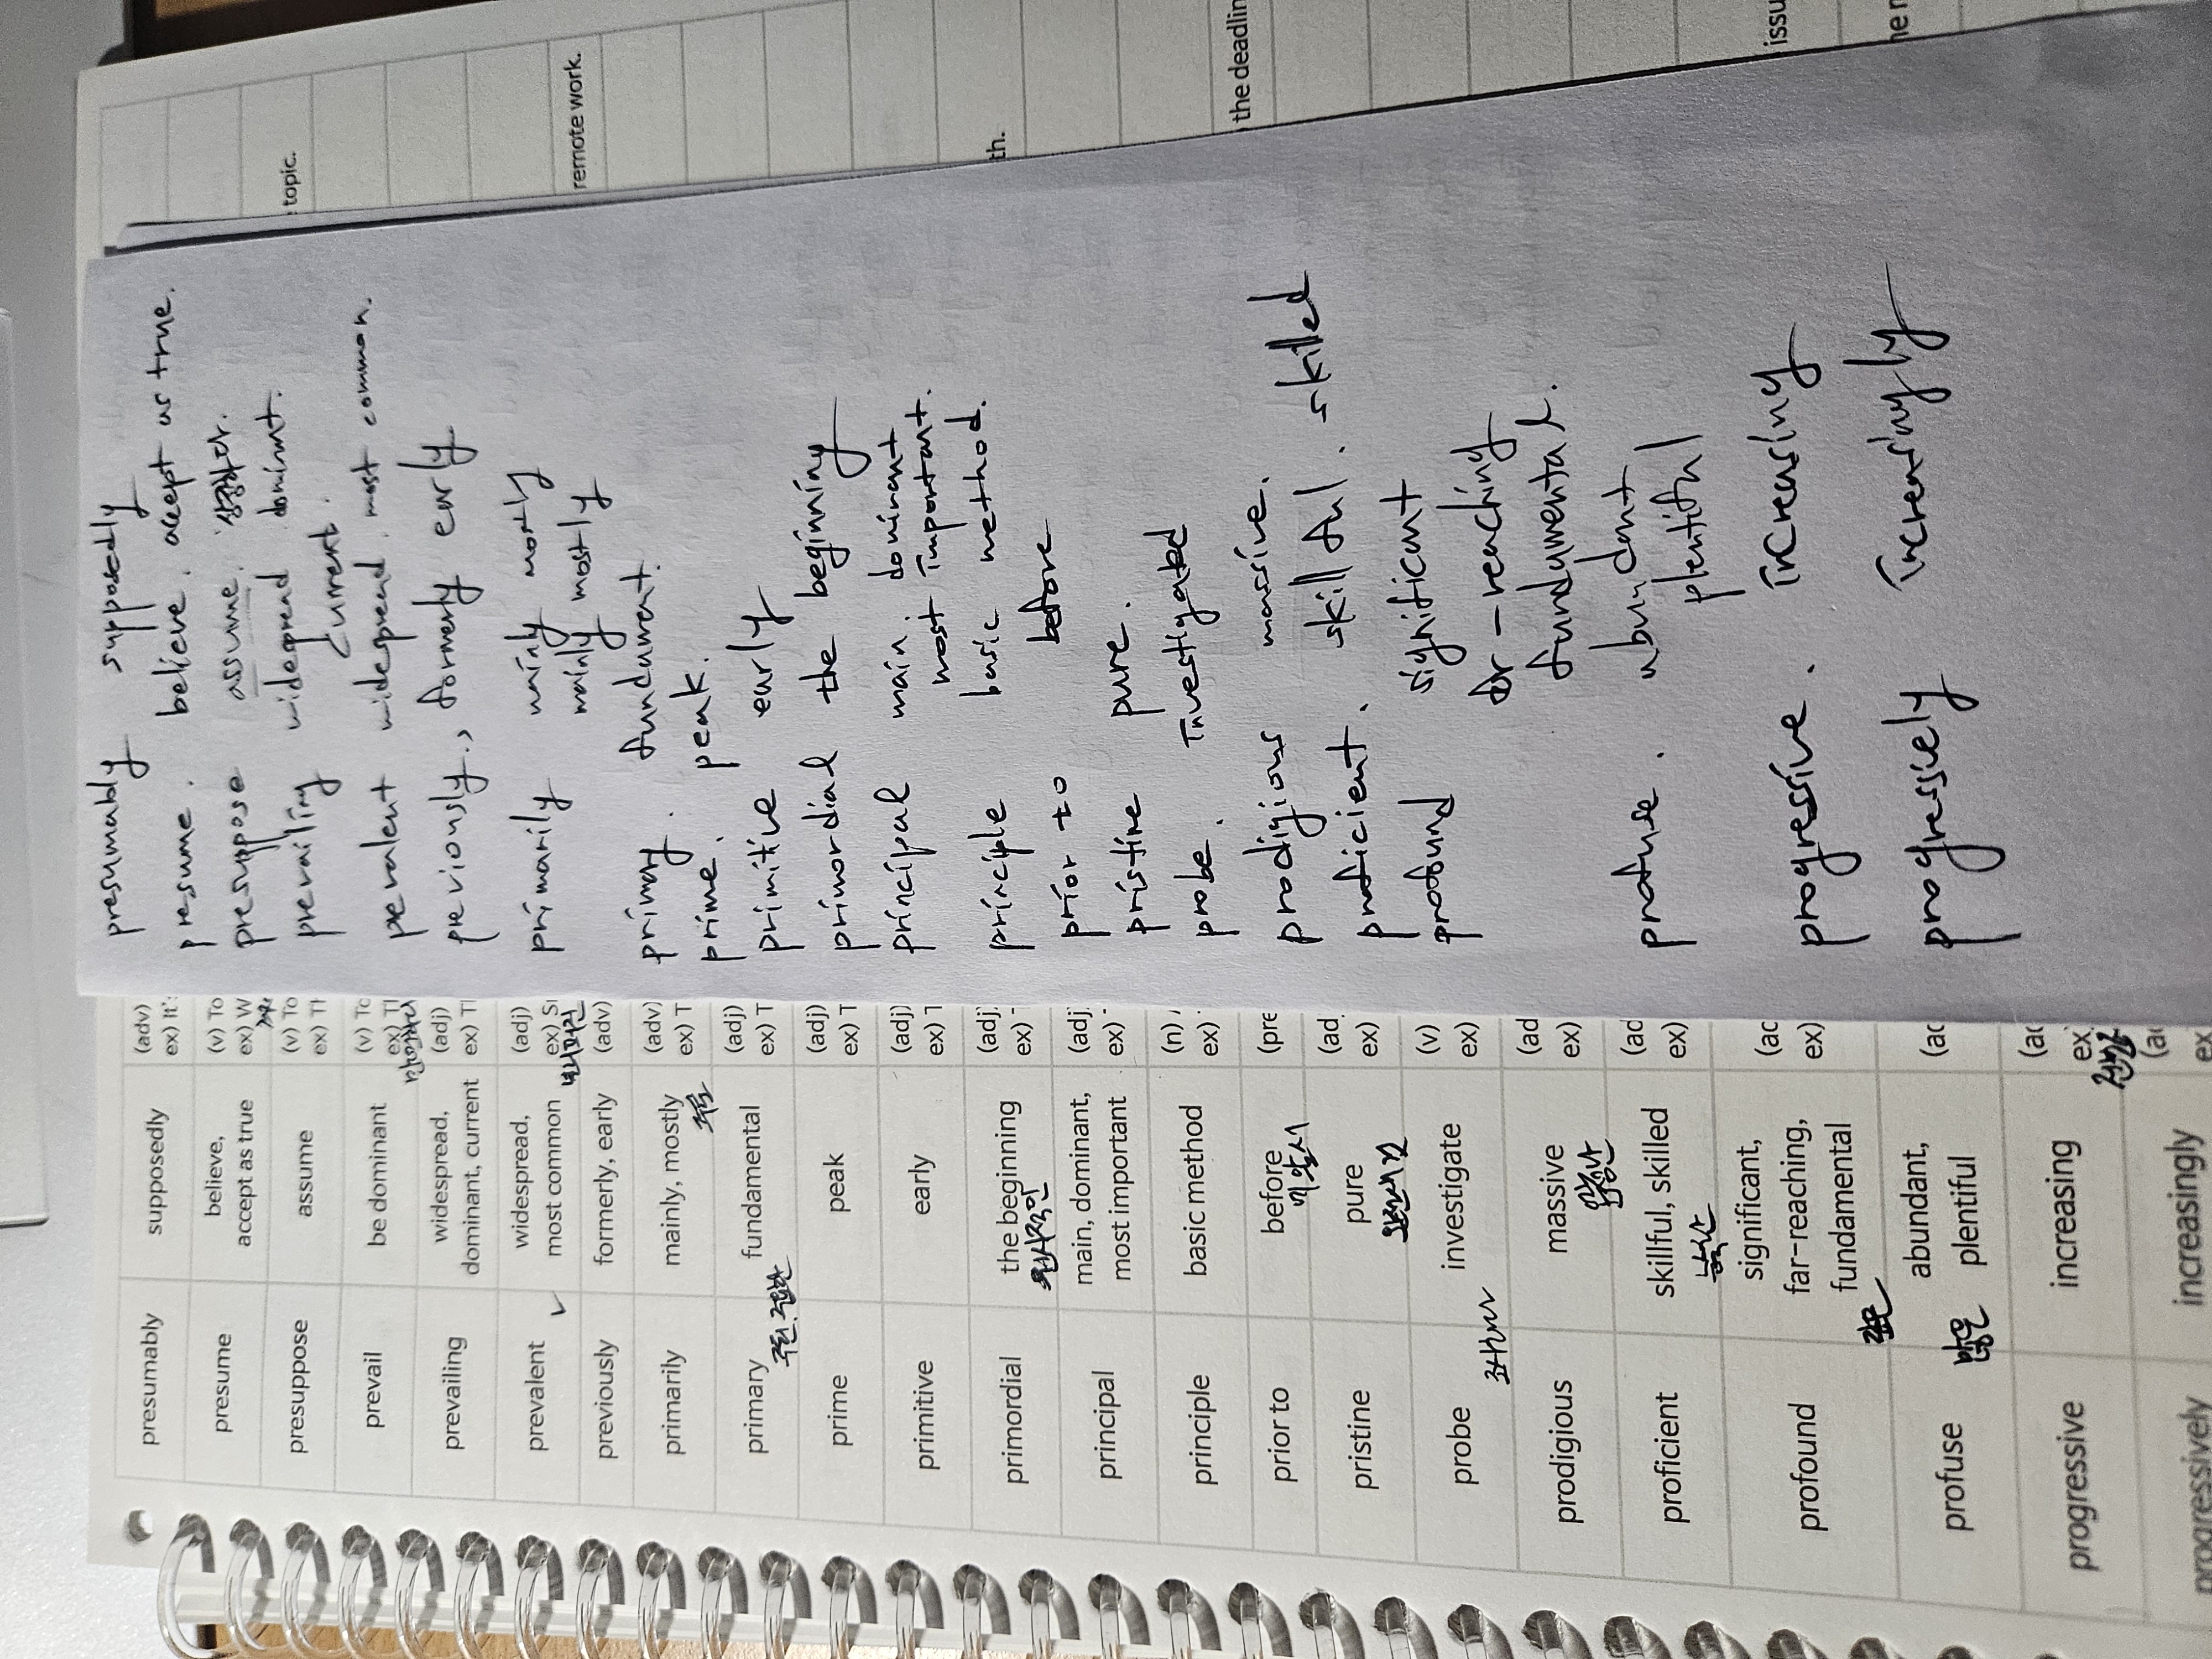 presumably
supposedly
(adv)
ex) It's
presume
believe,
accept as true
(v) To
ex) W
presuppose
assume
(v) To
ex) Th
prevail
be dominant
(v) To
ex) Tl
prevailing
widespread,
dominant, current
(adj)
ex) Tl
prevalent
widespread,
most common
(adj)
ex) Si
previously
formerly, early
(adv)
primarily
mainly, mostly
주로
(adv)
ex) T
primary
fundamental
(adj)
ex) T
prime
peak
(adj)
ex) T
primitive
early
(adj)
ex) T
primordial
the beginning
원시적인
(adj.
ex)
principal
main, dominant,
most important
(adj.
ex)
principle
basic method
(n)
ex)
prior to
before
에 앞서
(pre
pristine
pure
(ad
ex)
probe
investigate
(v)
ex)
prodigious
massive
(ad
ex)
proficient
skillful, skilled
(ad
ex)
profound
significant,
far-reaching,
fundamental
깊은
(ac
ex)
profuse
abundant,
plentiful
많은
(ac
progressive
increasing
(ac
ex)
progressively
increasingly
(ac
ex
presumably supposedly
presume. believe. accept as true.
presuppose assume.
prevailing widespread dominant.
current.
prevalent widespread most common.
previously., formerly early
primarily mainly mostly
mainly mostly
primary. fundament.
prime. peak.
primitive early
primordial the beginning
principal main. dominant
most important.
principle basic method.
prior to before
pristine pure.
probe. investigated
prodigious massive.
proficient. skillful. skilled
profound significant
far-reaching
fundamental.
profuse. abundant
plentiful
progressive. increasing
progressively increasingly
topic.
remote work.
th.
the deadlin
issu
he r